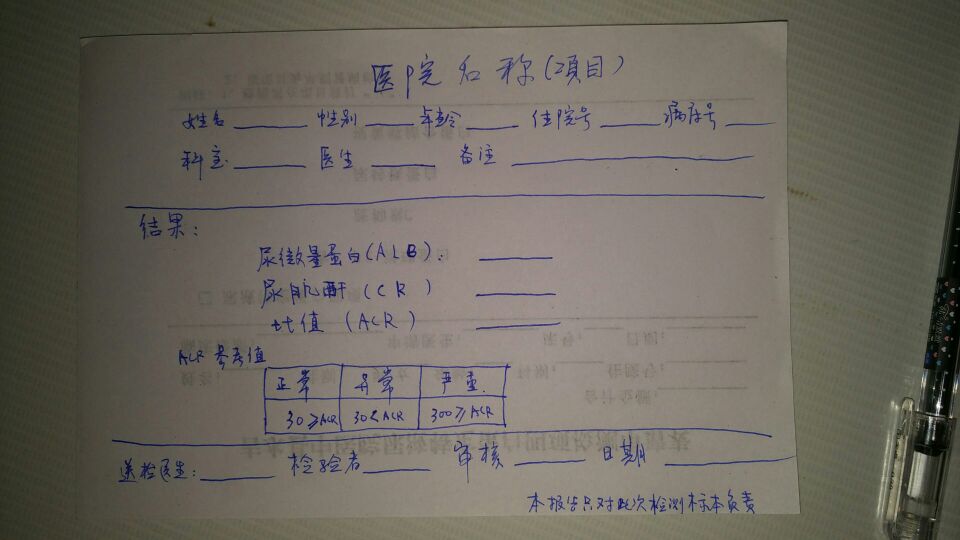 医院名称(项目)
姓名 性别 年龄 住院号 病床号
科室 医生 备注
结果:
尿微量蛋白(ALB).
尿肌酐(CR)
比值 (ACR)
ACR 参考值
正常 异常 严重
30≥ACR 30<ACR 300≥ACR
送检医生: 检验者 审核 日期
本报告只对此次检测标本负责